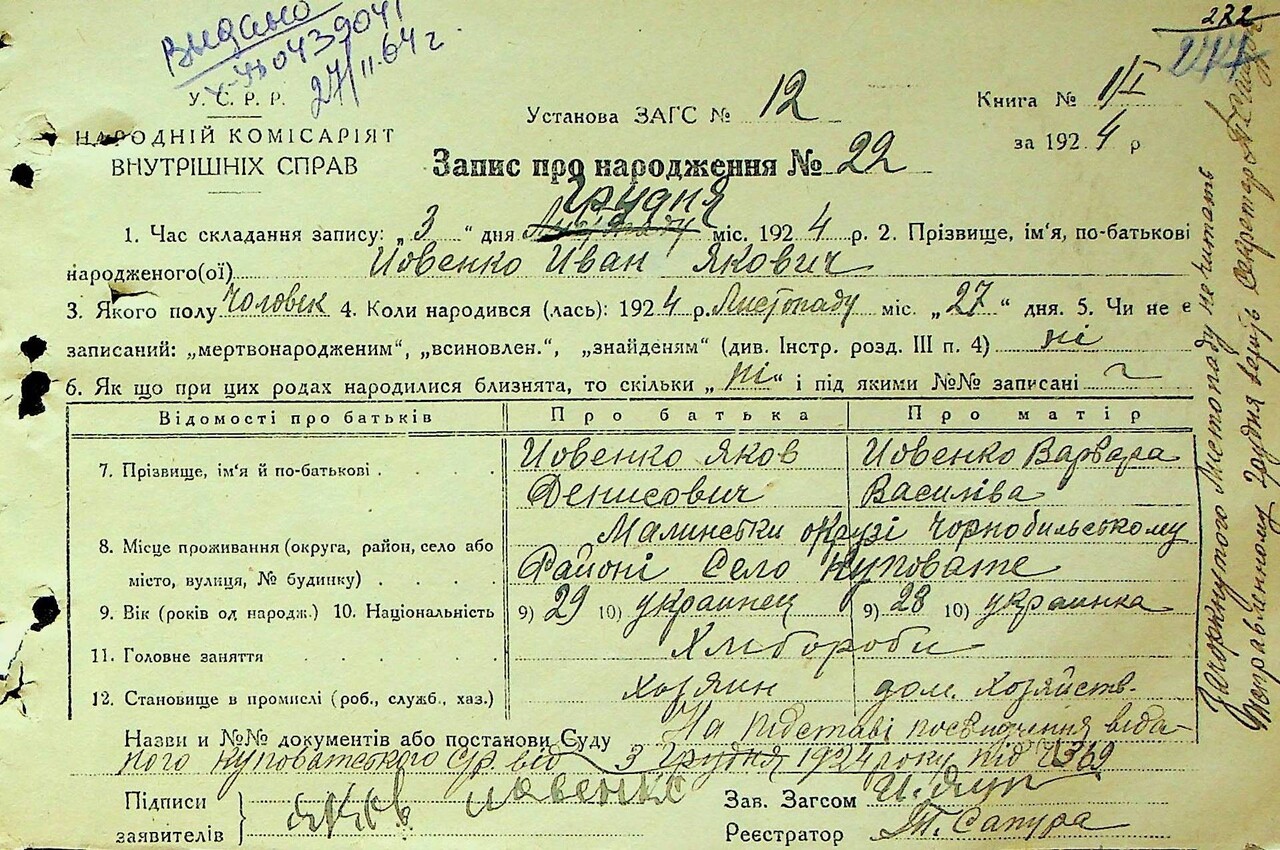 Выдано
27/II.64 г.
272
У. С. Р. Р.
НАРОДНІЙ КОМІСАРІЯТ
ВНУТРІШНІХ СПРАВ
Установа ЗАГС № 12
Книга № 1/I
за 1924 р
Запис про народження № 22
Грудня
1. Час складання запису: „3“ дня Листопаду міс. 1924 р. 2. Прізвище, ім'я, по-батькові
народженого(ої) Йовенко Иван Якович
3. Якого полу Чоловек 4. Коли народився (лась): 1924 р. Листопаду міс. „27“ дня. 5. Чи не є
записаний: „мертвонародженим“, „всиновлен.“, „знайденям“ (див. Інстр. розд. III п. 4) ні
6. Як що при цих родах народилися близнята, то скільки „ні“ і під якими №№ записані
Відомості про батьків Про батька Про матір
7. Прізвище, ім'я й по-батькові Йовенко Яков Йовенко Варвара
Денисович Василіва
Малинетки окрузі Чорнобильському
8. Місце проживання (округа, район, село або
місто, вулиця, № будинку) Районі Село Куповате
9. Вік (років од народж.) 10. Національність 9) 29 10) украинец 9) 28 10) украинка
11. Головне заняття Хліборoби
12. Становище в промислі (роб., служб., хаз.) хозяин дом. хозяйств.
Назви и №№ документів або постанови Суду На підставі посвидчення віда-
ного Куповатського С/р. від 3 Грудня 1924 року під № 369
Підписи
заявителів
яков иовенко
Зав. Загсом
Реєстратор Т. Сапура
Зачеркнутого Листопаду не читать
Исправленному Грудня верить Секретарь